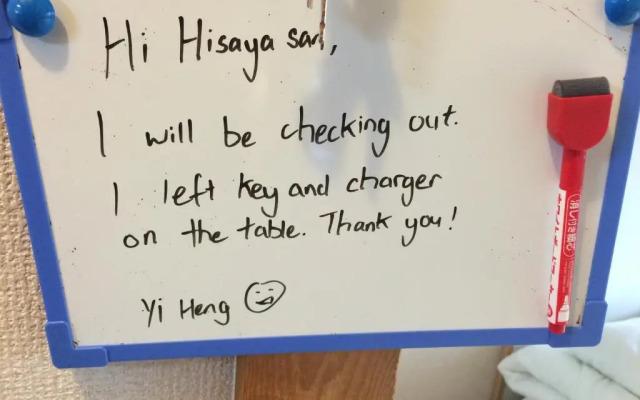 Hi Hisaya san,
I will be checking out.
I left key and charger
on the table. Thank you!
Yi Heng